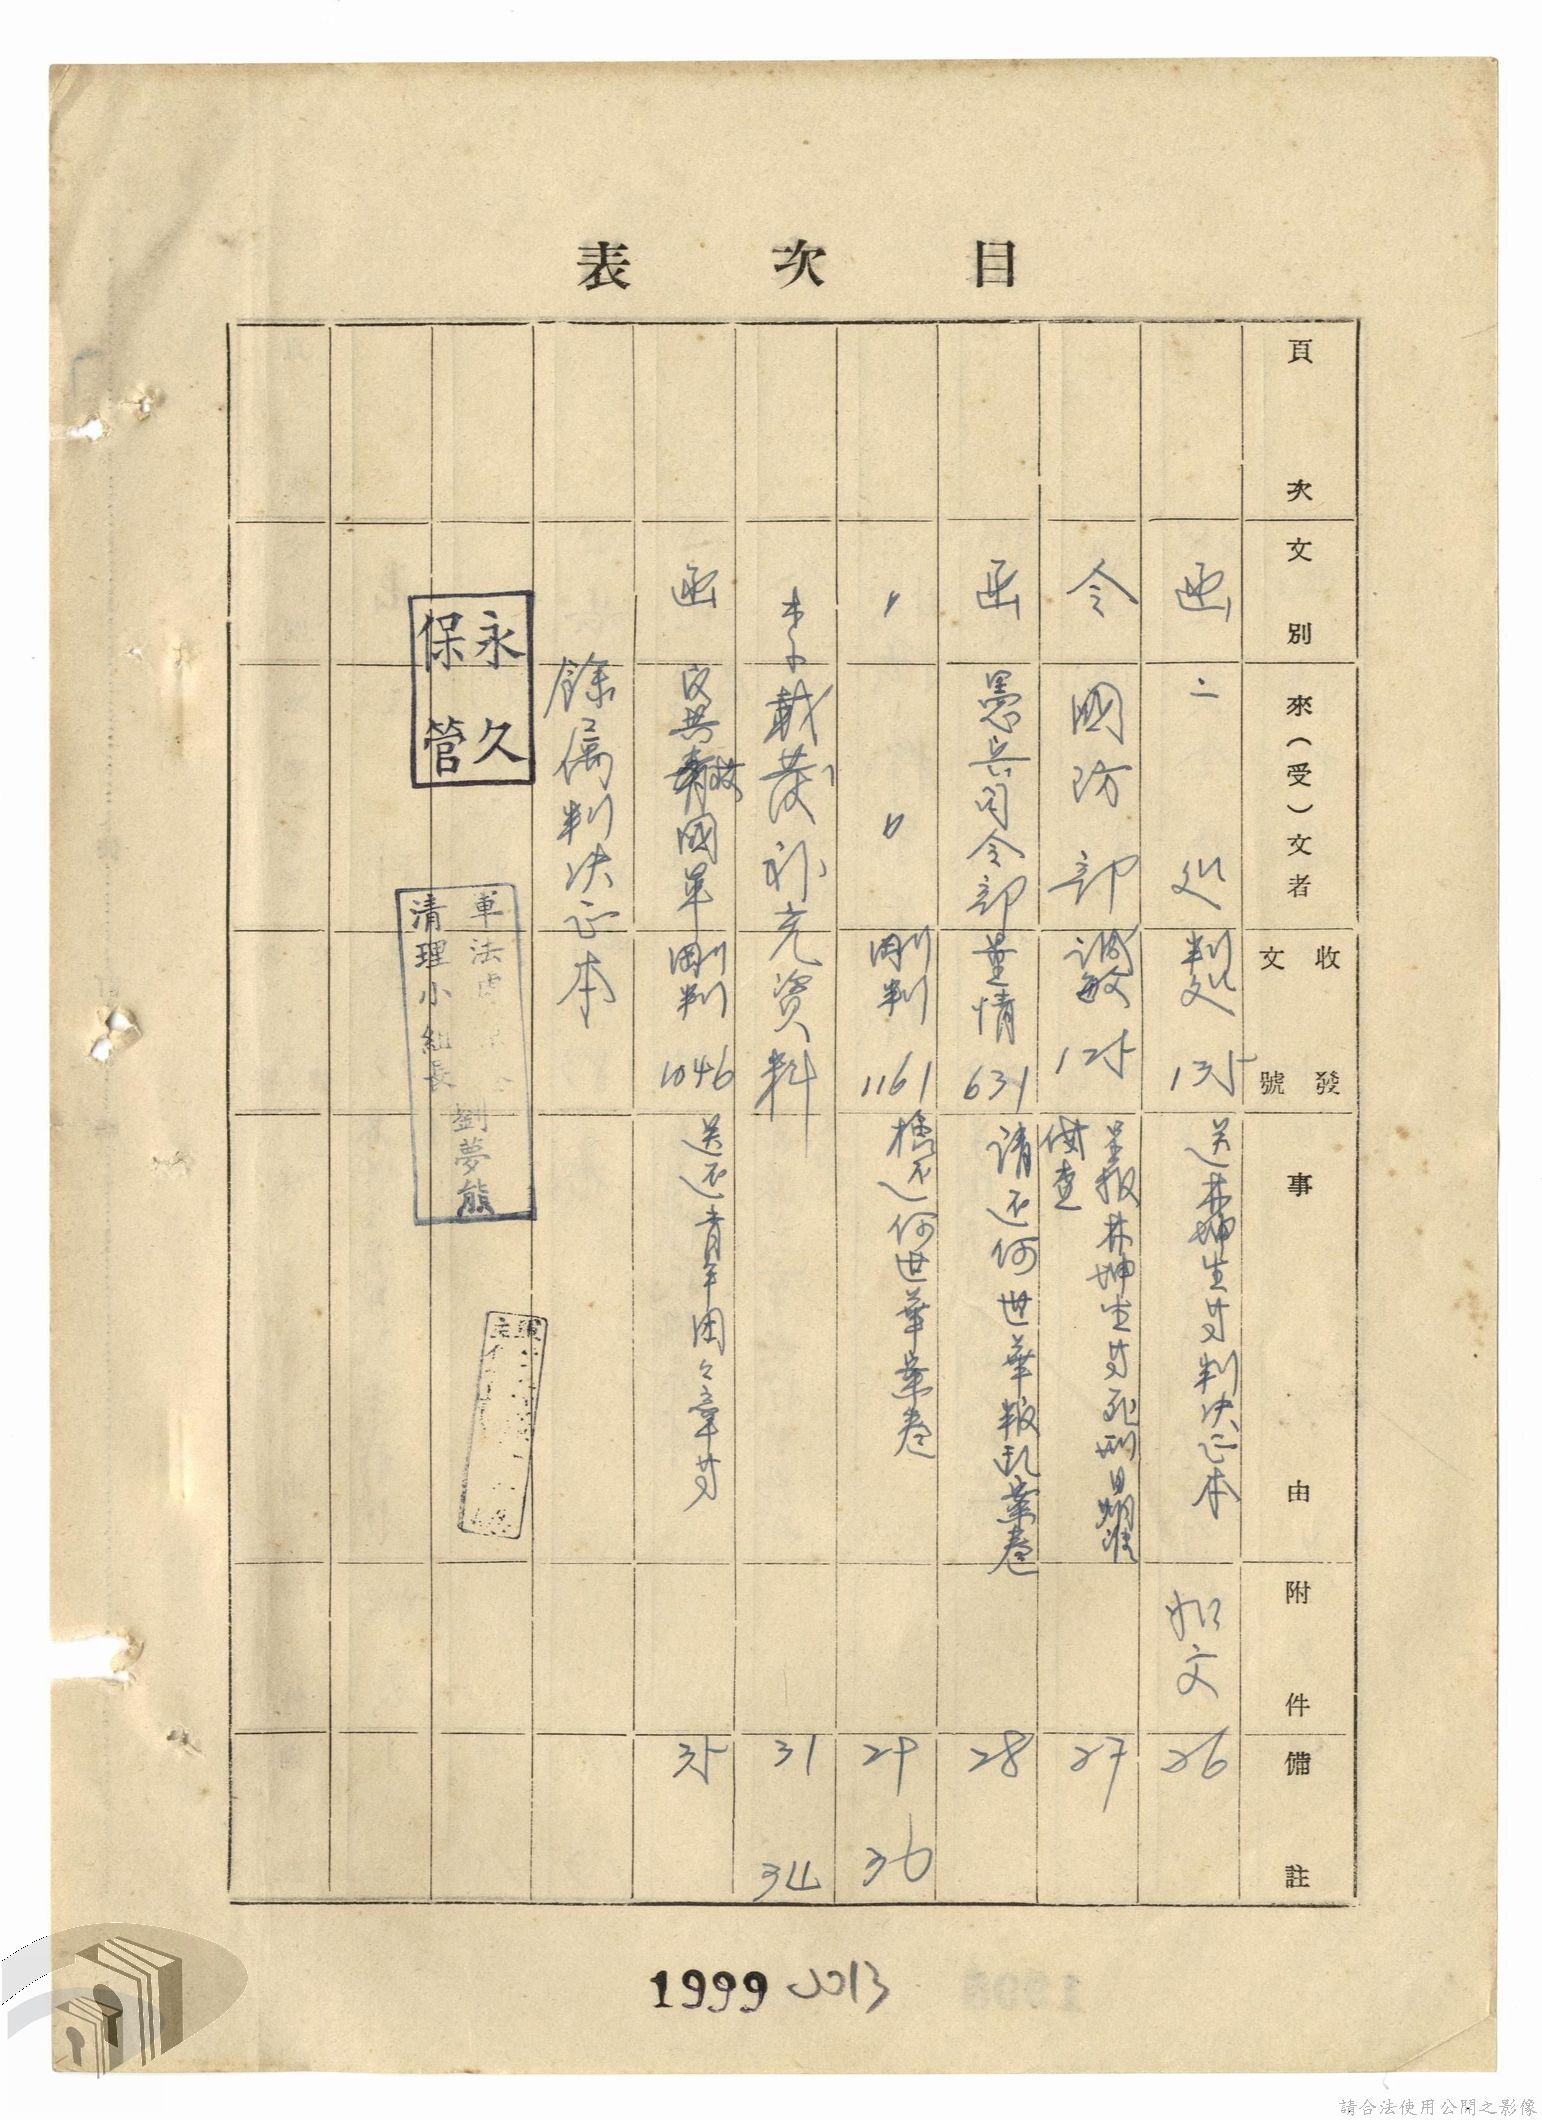 目次表
頁次
文別
來(受)文者
收發文號
事由
附件
備註
函 二 処 判処 135 送林坤生等判決正本 如文 26
令 國防部 125 呈报林坤生等死刑日 27
備查
函 憲兵司令部 631 请还何世華叛乱案卷 28
〃 〃 剛判 1161 检还何世華案卷 29 36
李載黄补充資料 31 34
函 國军 剛判 1046 送还青年团々章等 35
判决正本
永久保管
軍法
清理小組長 劉夢熊
1999 2013
請合法使用公開之影像